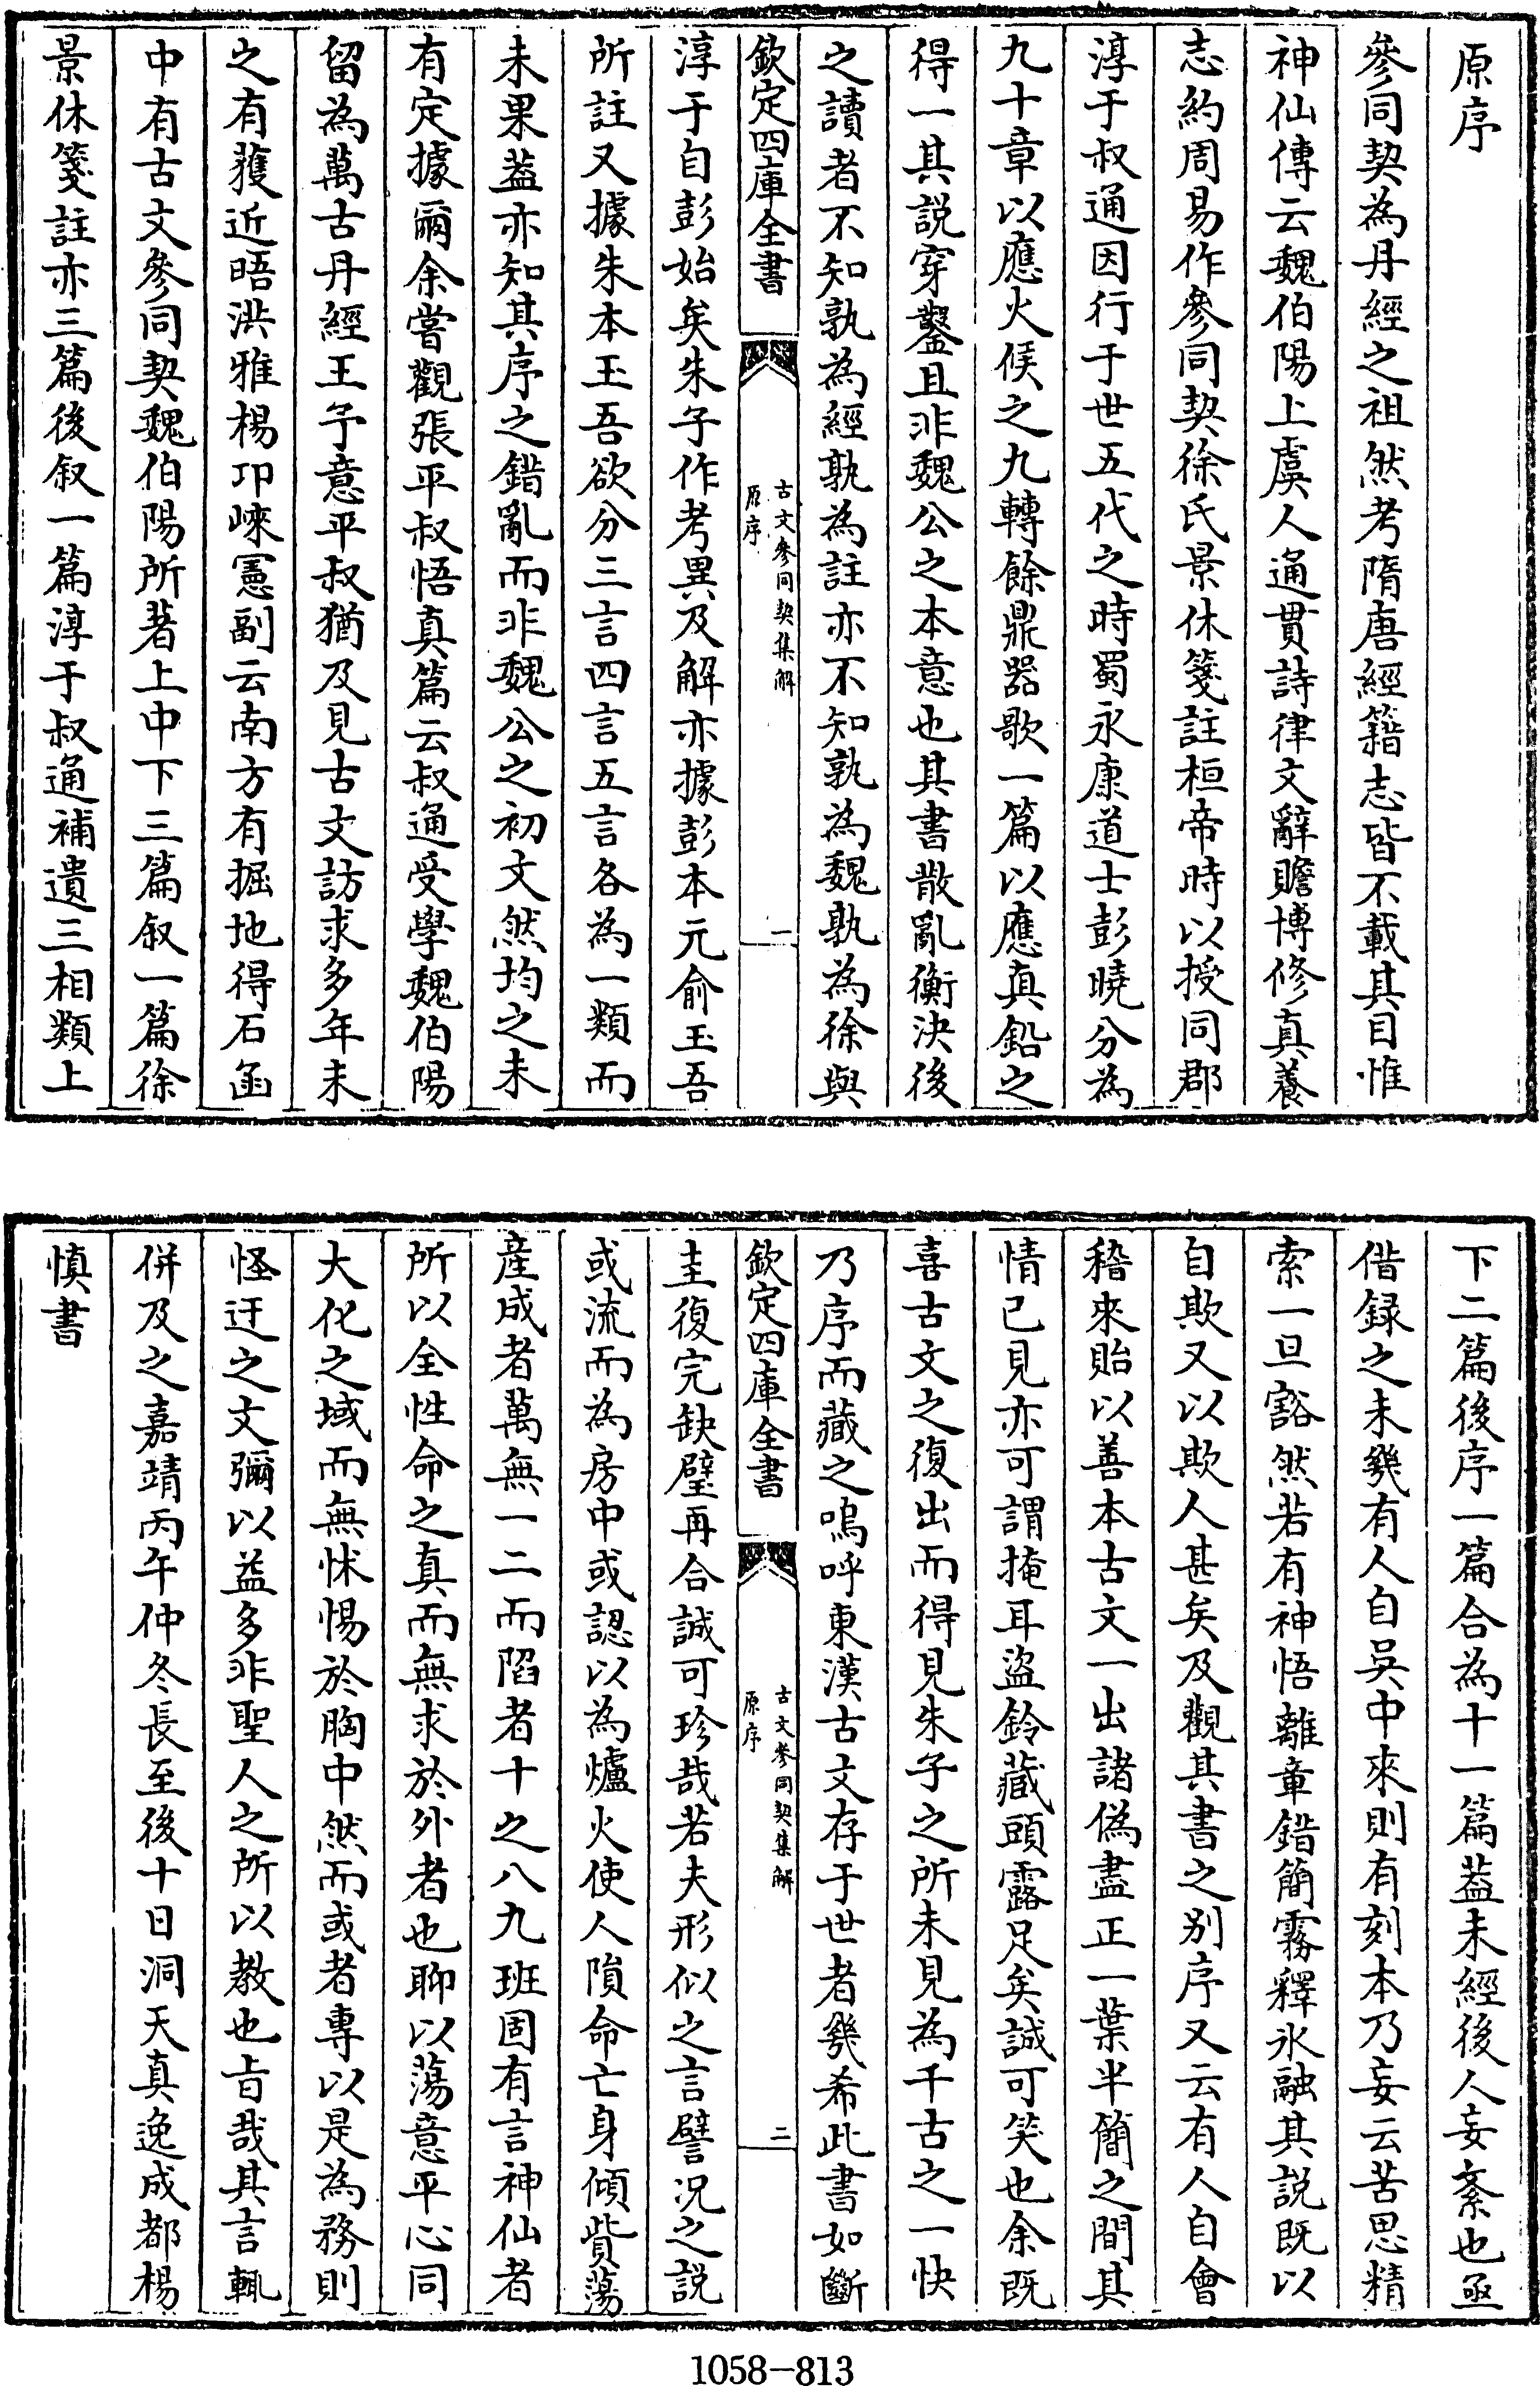 原序
參同契為丹經之祖然考隋唐經籍志皆不載其目惟
神仙傳云魏伯陽上虞人通貫詩律文辭贍博修真養
志約周易作參同契徐氏景休箋註桓帝時以授同郡
淳于叔通因行于世五代之時蜀永康道士彭曉分為
九十章以應火候之九轉餘鼎器歌一篇以應真鉛之
得一其説穿鑿且非魏公之本意也其書散亂衡決後
之讀者不知孰為經孰為註亦不知孰為魏孰為徐與
欽定四庫全書
古文參同契集解
原序
一
淳于自彭始矣朱子作考異及解亦據彭本元俞玉吾
所註又據朱本玉吾欲分三言四言五言各為一類而
未果葢亦知其序之錯亂而非魏公之初文然均之未
有定據爾余嘗觀張平叔悟真篇云叔通受學魏伯陽
留為萬古丹經王予意平叔猶及見古文訪求多年未
之有獲近晤洪雅楊邛崍憲副云南方有掘地得石函
中有古文參同契魏伯陽所著上中下三篇叙一篇徐
景休箋註亦三篇後叙一篇淳于叔通補遺三相類上
下二篇後序一篇合為十一篇葢未經後人妄紊也亟
借録之未幾有人自吳中來則有刻本乃妄云苦思精
索一旦豁然若有神悟離章錯簡霧釋氷融其説既以
自欺又以欺人甚矣及觀其書之别序又云有人自會
稽來貽以善本古文一出諸偽盡正一葉半簡之間其
情已見亦可謂掩耳盜鈴藏頭露足矣誠可笑也余既
喜古文之復出而得見朱子之所未見為千古之一快
乃序而藏之嗚呼東漢古文存于世者幾希此書如斷
欽定四庫全書
古文參同契集解
原序
二
圭復完缺璧再合誠可珍哉若夫形似之言譬况之説
或流而為房中或認以為爐火使人隕命亡身傾貲蕩
産成者萬無一二而陷者十之八九班固有言神仙者
所以全性命之真而無求於外者也聊以蕩意平心同
大化之域而無怵惕於胸中然而或者專以是為務則
怪迂之文彌以益多非聖人之所以教也旨哉其言輒
併及之嘉靖丙午仲冬長至後十日洞天真逸成都楊
慎書
1058-813